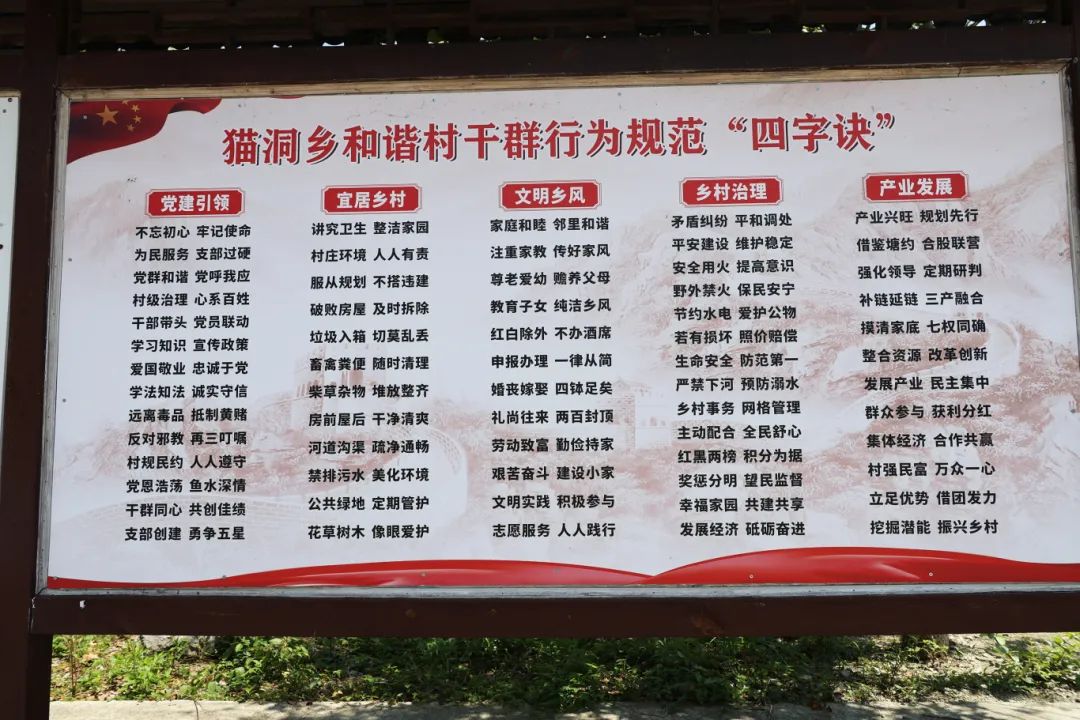 猫洞乡和谐村干群行为规范“四字诀”
党建引领
不忘初心 牢记使命
为民服务 支部过硬
党群和谐 党呼我应
村级治理 心系百姓
干部带头 党员联动
学习知识 宣传政策
爱国敬业 忠诚于党
学法知法 诚实守信
远离毒品 抵制黄赌
反对邪教 再三叮嘱
村规民约 人人遵守
党恩浩荡 鱼水深情
干群同心 共创佳绩
支部创建 勇争五星
宜居乡村
讲究卫生 整洁家园
村庄环境 人人有责
服从规划 不搭违建
破败房屋 及时拆除
垃圾入箱 切莫乱丢
畜禽粪便 随时清理
柴草杂物 堆放整齐
房前屋后 干净清爽
河道沟渠 疏净通畅
禁排污水 美化环境
公共绿地 定期管护
花草树木 像眼爱护
文明乡风
家庭和睦 邻里和谐
注重家教 传好家风
尊老爱幼 赡养父母
教育子女 纯洁乡风
红白除外 不办酒席
申报办理 一律从简
婚丧嫁娶 四钵足矣
礼尚往来 两百封顶
劳动致富 勤俭持家
艰苦奋斗 建设小家
文明实践 积极参与
志愿服务 人人践行
乡村治理
矛盾纠纷 平和调处
平安建设 维护稳定
安全用火 提高意识
野外禁火 保民安宁
节约水电 爱护公物
若有损坏 照价赔偿
生命安全 防范第一
严禁下河 预防溺水
乡村事务 网格管理
主动配合 全民舒心
红黑两榜 积分为据
奖惩分明 望民监督
幸福家园 共建共享
发展经济 砥砺奋进
产业发展
产业兴旺 规划先行
借鉴塘约 合股联营
强化领导 定期研判
补链延链 三产融合
摸清家底 七权同确
整合资源 改革创新
发展产业 民主集中
群众参与 获利分红
集体经济 合作共赢
村强民富 万众一心
立足优势 借团发力
挖掘潜能 振兴乡村